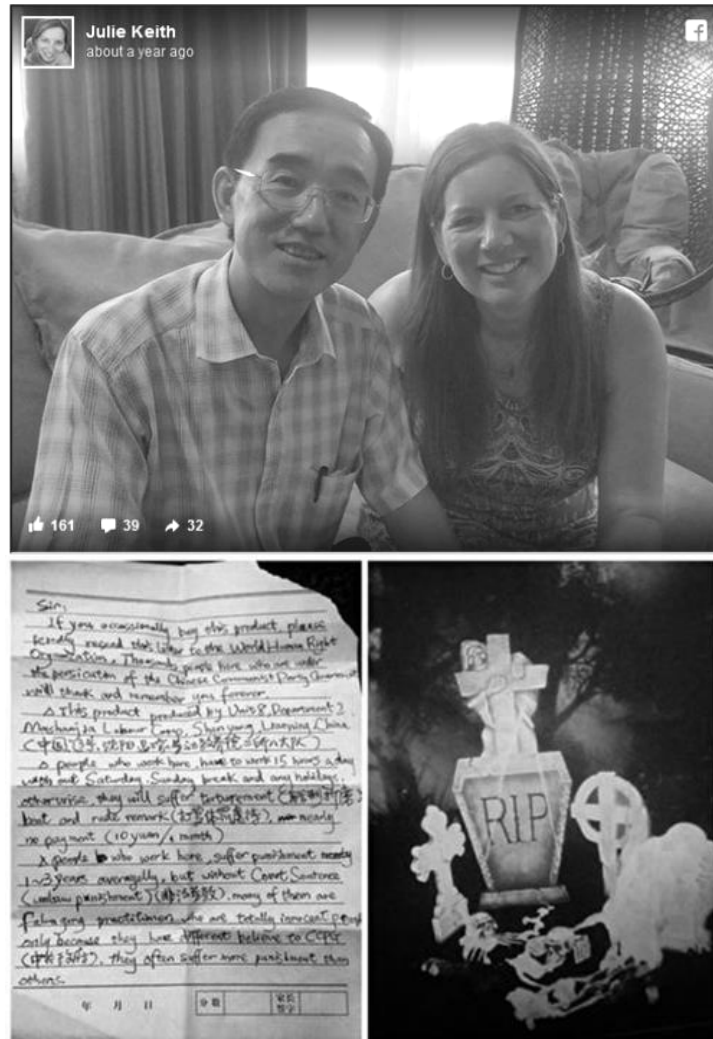 Julie Keith
about a year ago
161 39 32
Sir,
If you occassionally buy this product, please
kindly resend this letter to the World Human Right
Organization. Thousands people here who are under
the persicution of the Chinese Communist Party Government
will thank and remember you forever.
△ This product produced by Unit 8, Department 2
Labour Camp, Shen yang, China
(中国
△ people who work here, have to work 15 hours a day
with out Saturday, Sunday break and any holidays,
otherwise, they will suffer torturement
beat and rude remark nearly
no payment (10 yuan/1 month)
△ people who work here, suffer punishment nearly
1~3 years averagelly, but without Court Sentence
(unlaw punishment) (非法劳教), many of them are
practitioner, who are totally innocent
only because they have different believe to CCPG
they often suffer more punishment than
others.
年 月 日 分数 家长签字
RIP